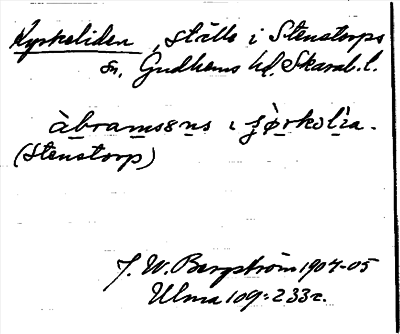 Kyrkeliden, ställe i Stenstorps
sn, Gudhems hd, Skarab. l.
àbramsɛns ɩ ʂørkolia.
(Stenstorp)
J. W. Bergström 1904-05
Ulma 109: 233 r.